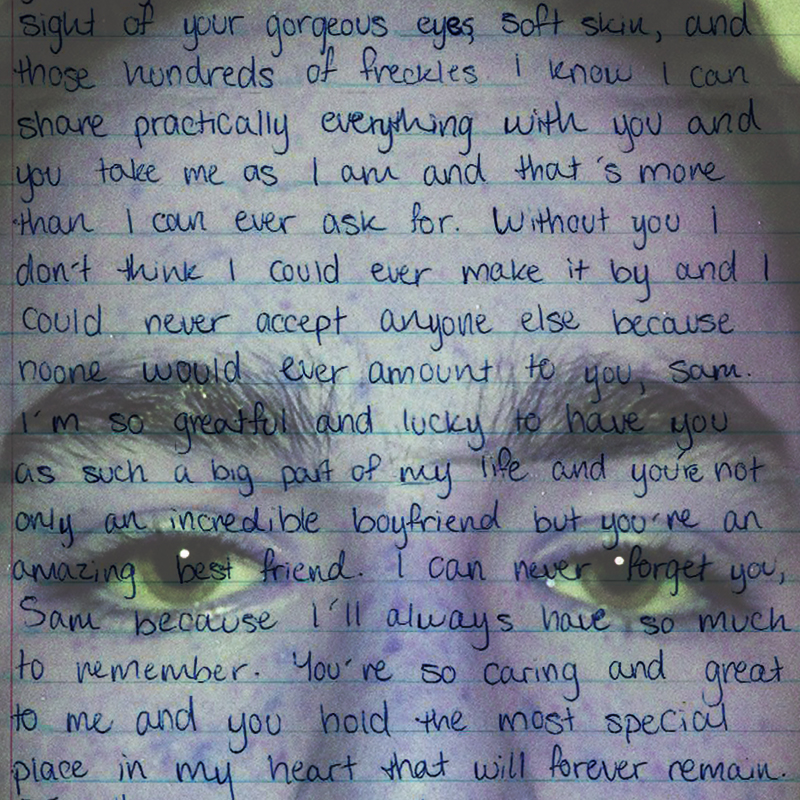 sight of your gorgeous eyes, soft skin, and
those hundreds of freckles. I know I can
share practically everything with you and
you take me as I am and that's more
than I can ever ask for. Without you I
don't think I could ever make it by and I
could never accept anyone else because
noone would ever amount to you, Sam.
I'm so greatful and lucky to have you
as such a big part of my life and you're not
only an incredible boyfriend but you're an
amazing best friend. I can never forget you,
Sam because I'll always have so much
to remember. You're so caring and great
to me and you hold the most special
place in my heart that will forever remain.